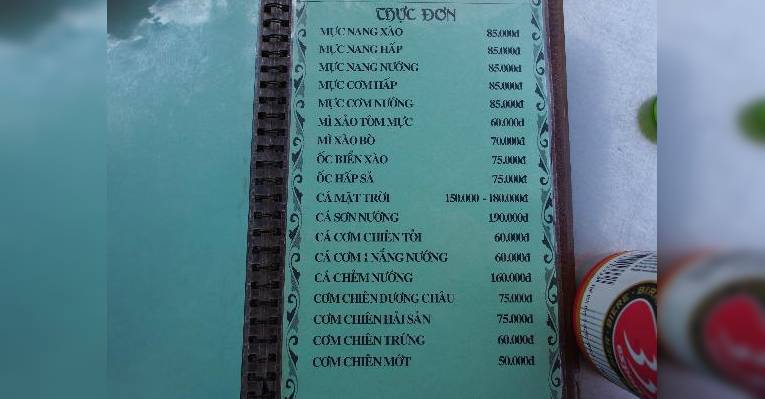 THỰC ĐƠN
MỰC NANG XÀO 85.000đ
MỰC NANG HẤP 85.000đ
MỰC NANG NƯỚNG 85.000đ
MỰC CƠM HẤP 85.000đ
MỰC CƠM NƯỚNG 85.000đ
MÌ XÀO TÔM MỰC 60.000đ
MÌ XÀO BÒ 70.000đ
ỐC BIỂN XÀO 75.000đ
ỐC HẤP SẢ 75.000đ
CÁ MẶT TRỜI 150.000 - 180.000đ
CÁ SƠN NƯỚNG 190.000đ
CÁ CƠM CHIÊN TỎI 60.000đ
CÁ CƠM 1 NẮNG NƯỚNG 60.000đ
CÁ CHẼM NƯỚNG 160.000đ
CƠM CHIÊN DƯƠNG CHÂU 75.000đ
CƠM CHIÊN HẢI SẢN 75.000đ
CƠM CHIÊN TRỨNG 60.000đ
CƠM CHIÊN MỚT 50.000đ
BIERE